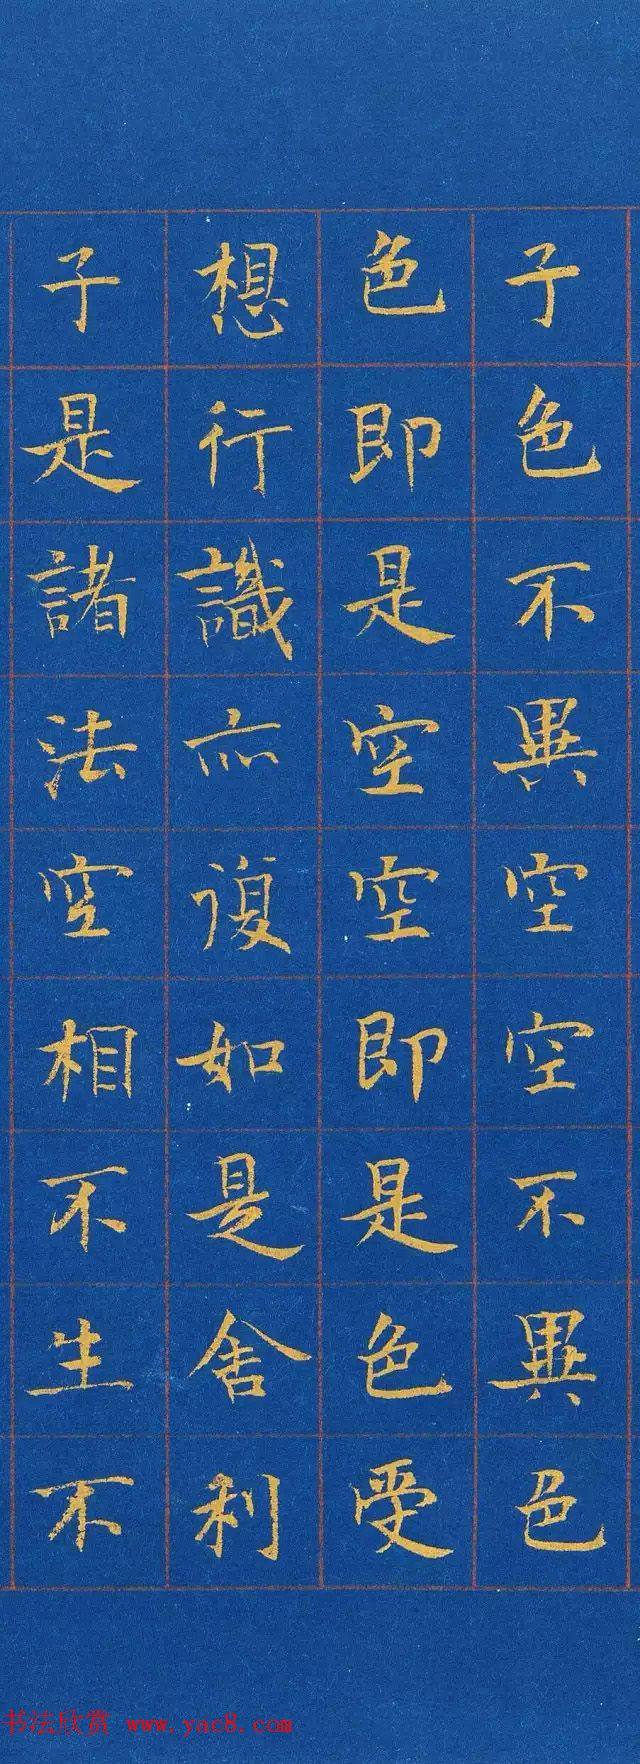 子色不異空空不異色
色即是空空即是色受
想行識亦復如是舍利
子是諸法空相不生不
书法欣赏 www.yac8.com